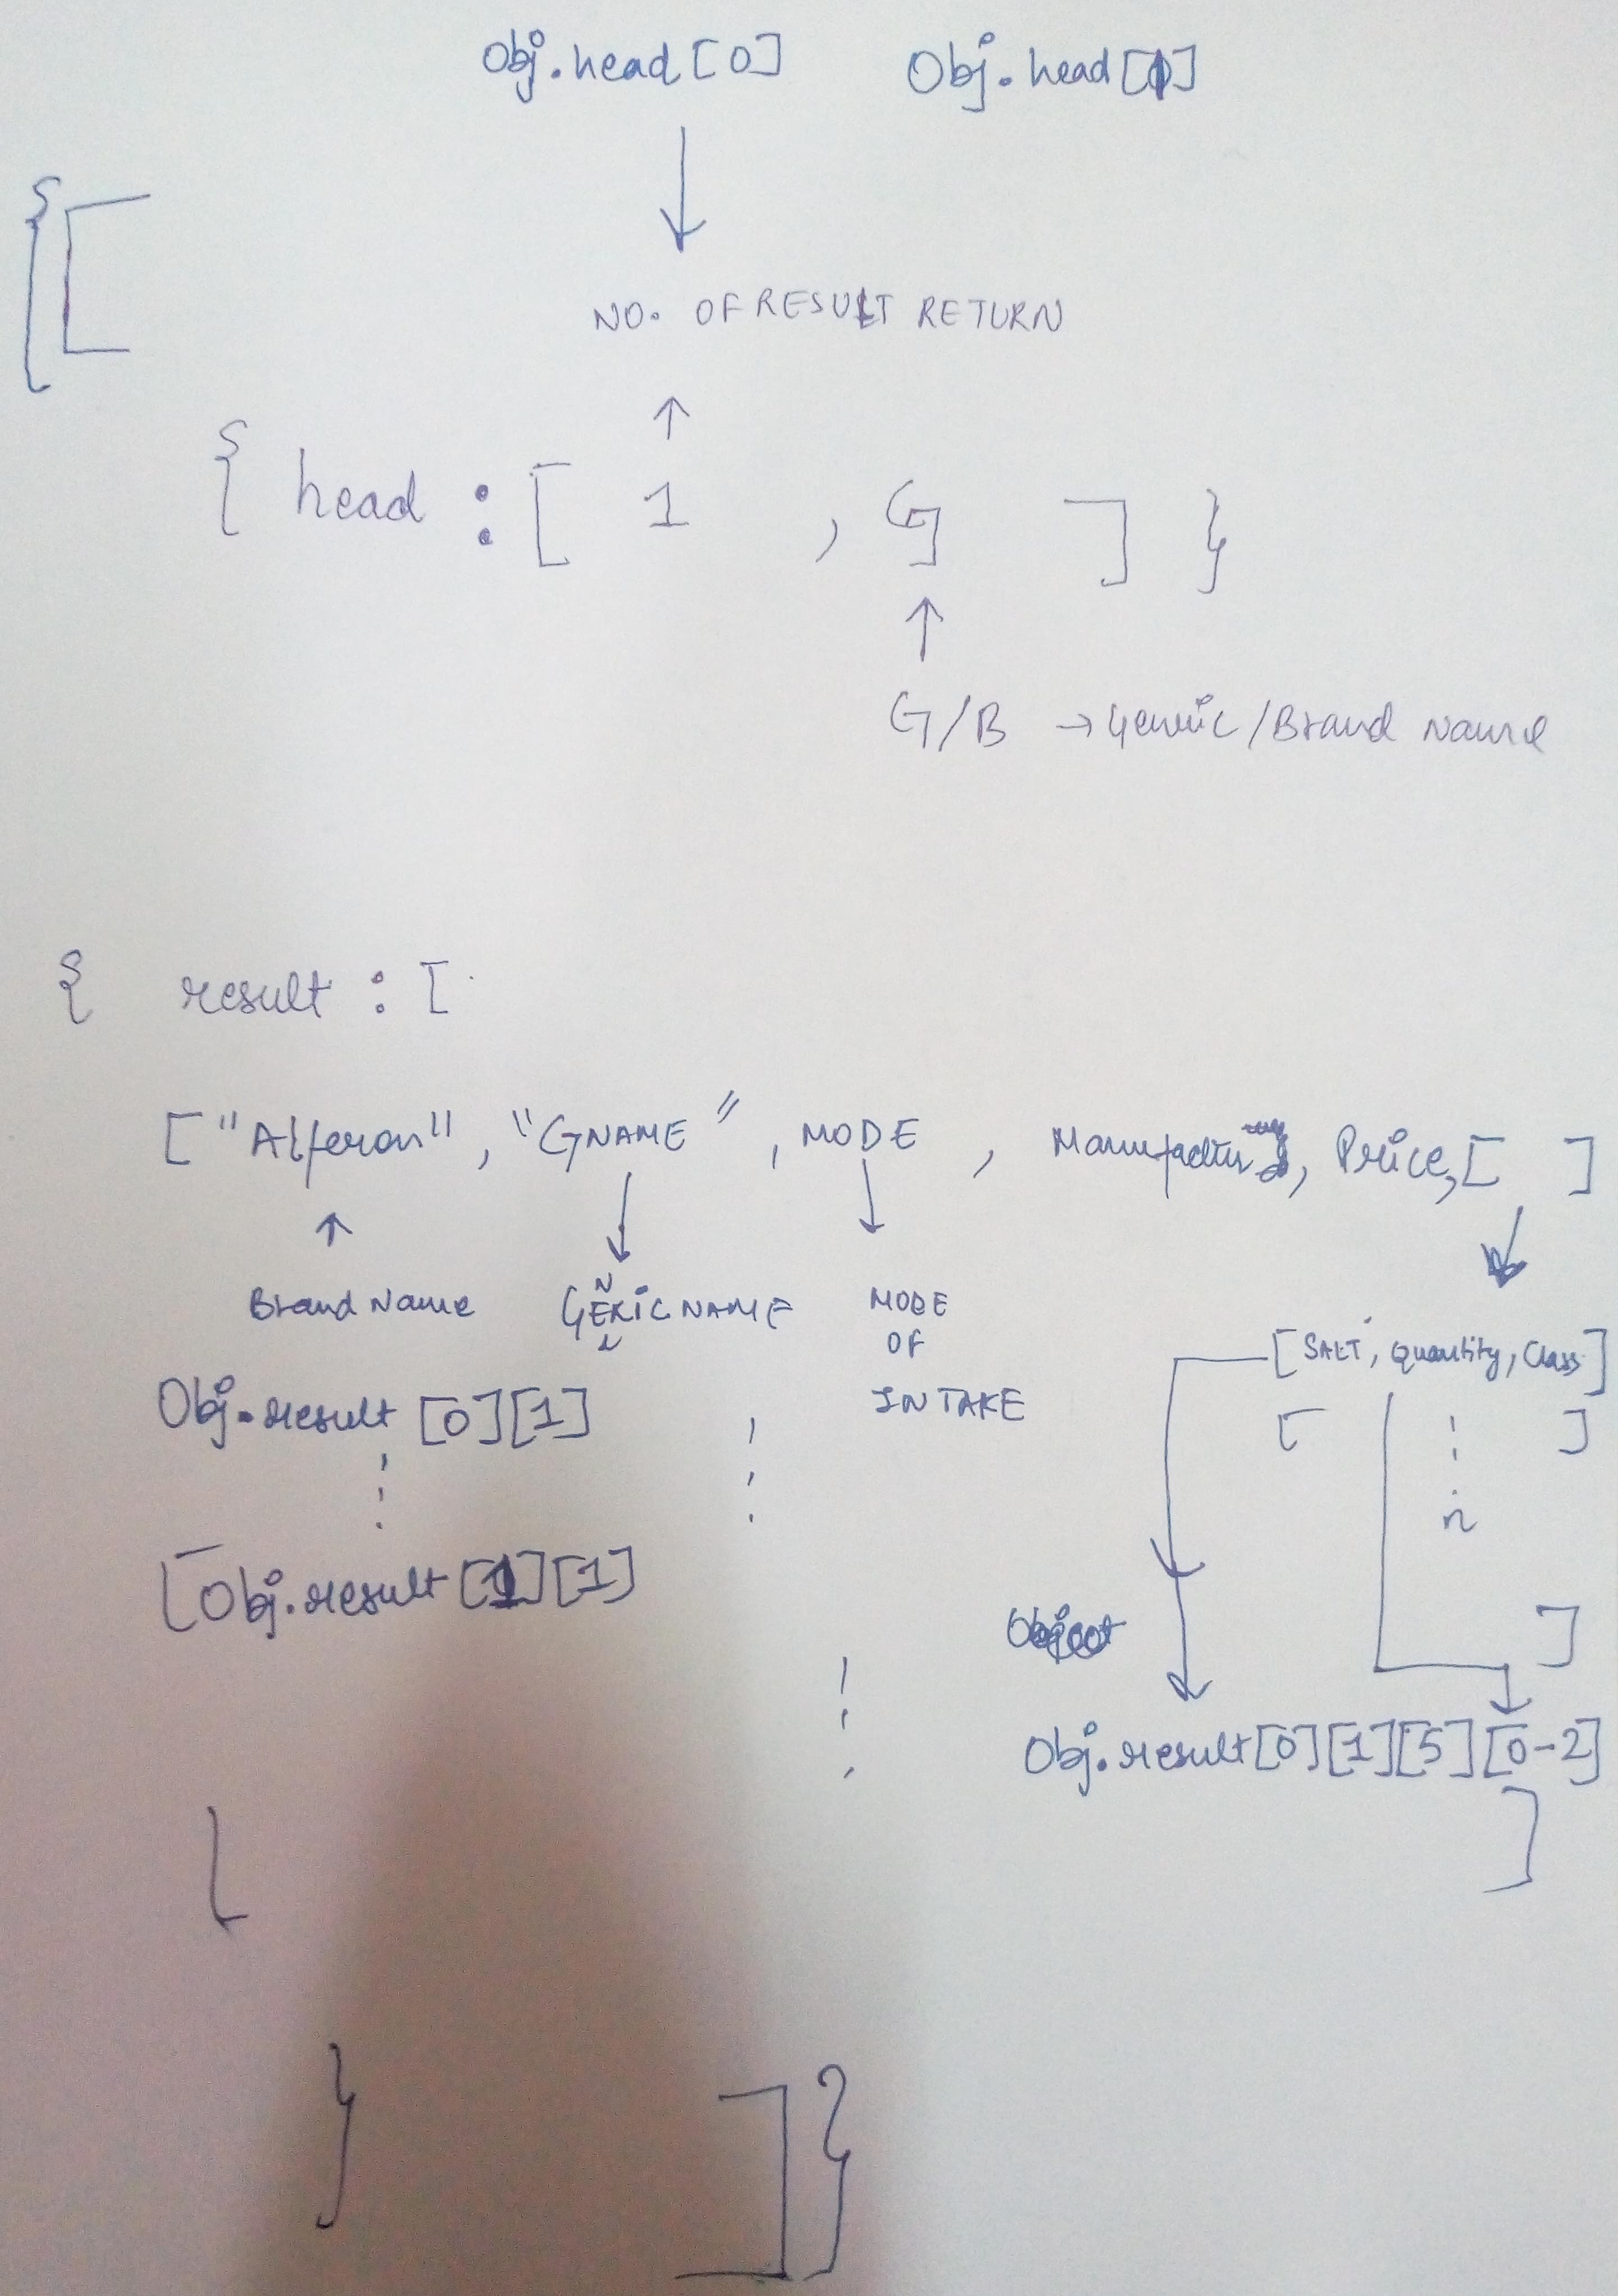 Obj.head[0] Obj.head[1]
{[
NO. OF RESULT RETURN
{ head : [ 1 , G ] }
G/B → Generic/Brand Name
{ result : [
["Alferon", "GNAME", MODE, Manufacturing, Price, [ ]
Brand Name GENERICNAME MODE
OF
INTAKE
[SALT, Quantity, Class]
Obj.result[0][1]
[ ]
n
[Obj.result[1][1]
]
Obj.result[0][1][5][0-2]
[ ]
} ]}